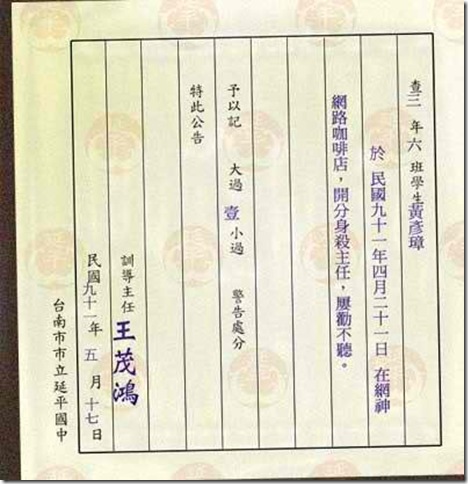 查三年六班學生黃彥璋
於 民國九十一年四月二十一日 在網神
網路咖啡店，開分身殺主任，屢勸不聽。
予以記 大過 壹 小過 警告處分
特此公告
訓導主任 王茂鴻
民國九十一年 五 月 十七日
台南市市立延平國中